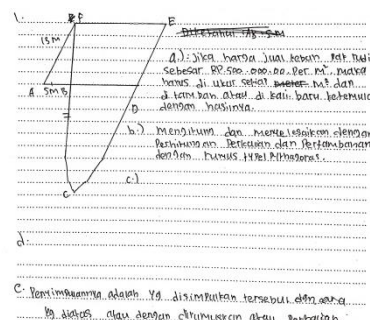 1.
F E
Diketahui AB = 5 M
13 M
a.) Jika harga jual kebun Pak Budi
sebesar RP.500.000.00, Per M², maka
A 5M B
harus di ukur setiap M² dan
di tambah atau di kali baru ketemulah
D
dengan hasilnya.
b.) Menghitung dan Menyelesaikan dengan
Perhitungan Perkalian dan Pertambahan
dengan rumus tripel Pithagoras.
C
c.)
d.
C. Penyimpulannya adalah yg disimpulkan tersebut dengan
yg diatas atau dengan dirumuskan atau